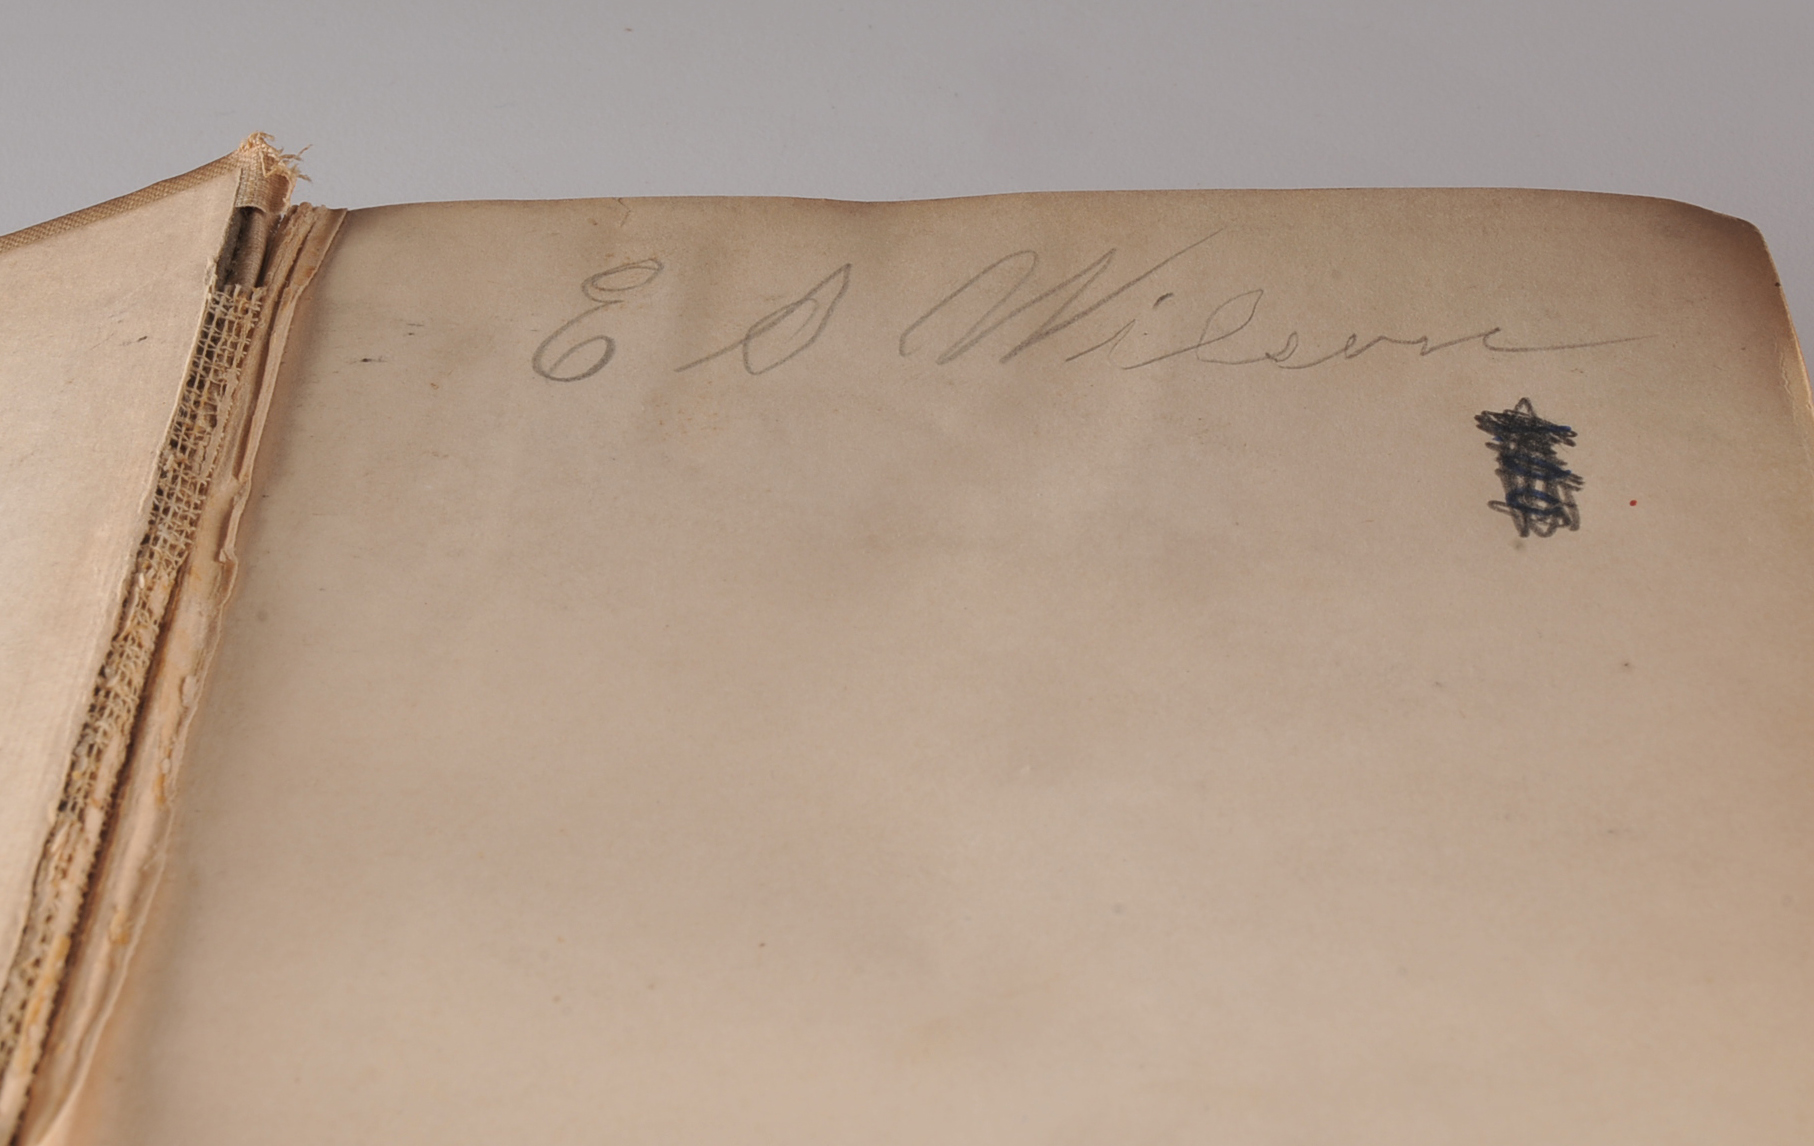 E S Wilson